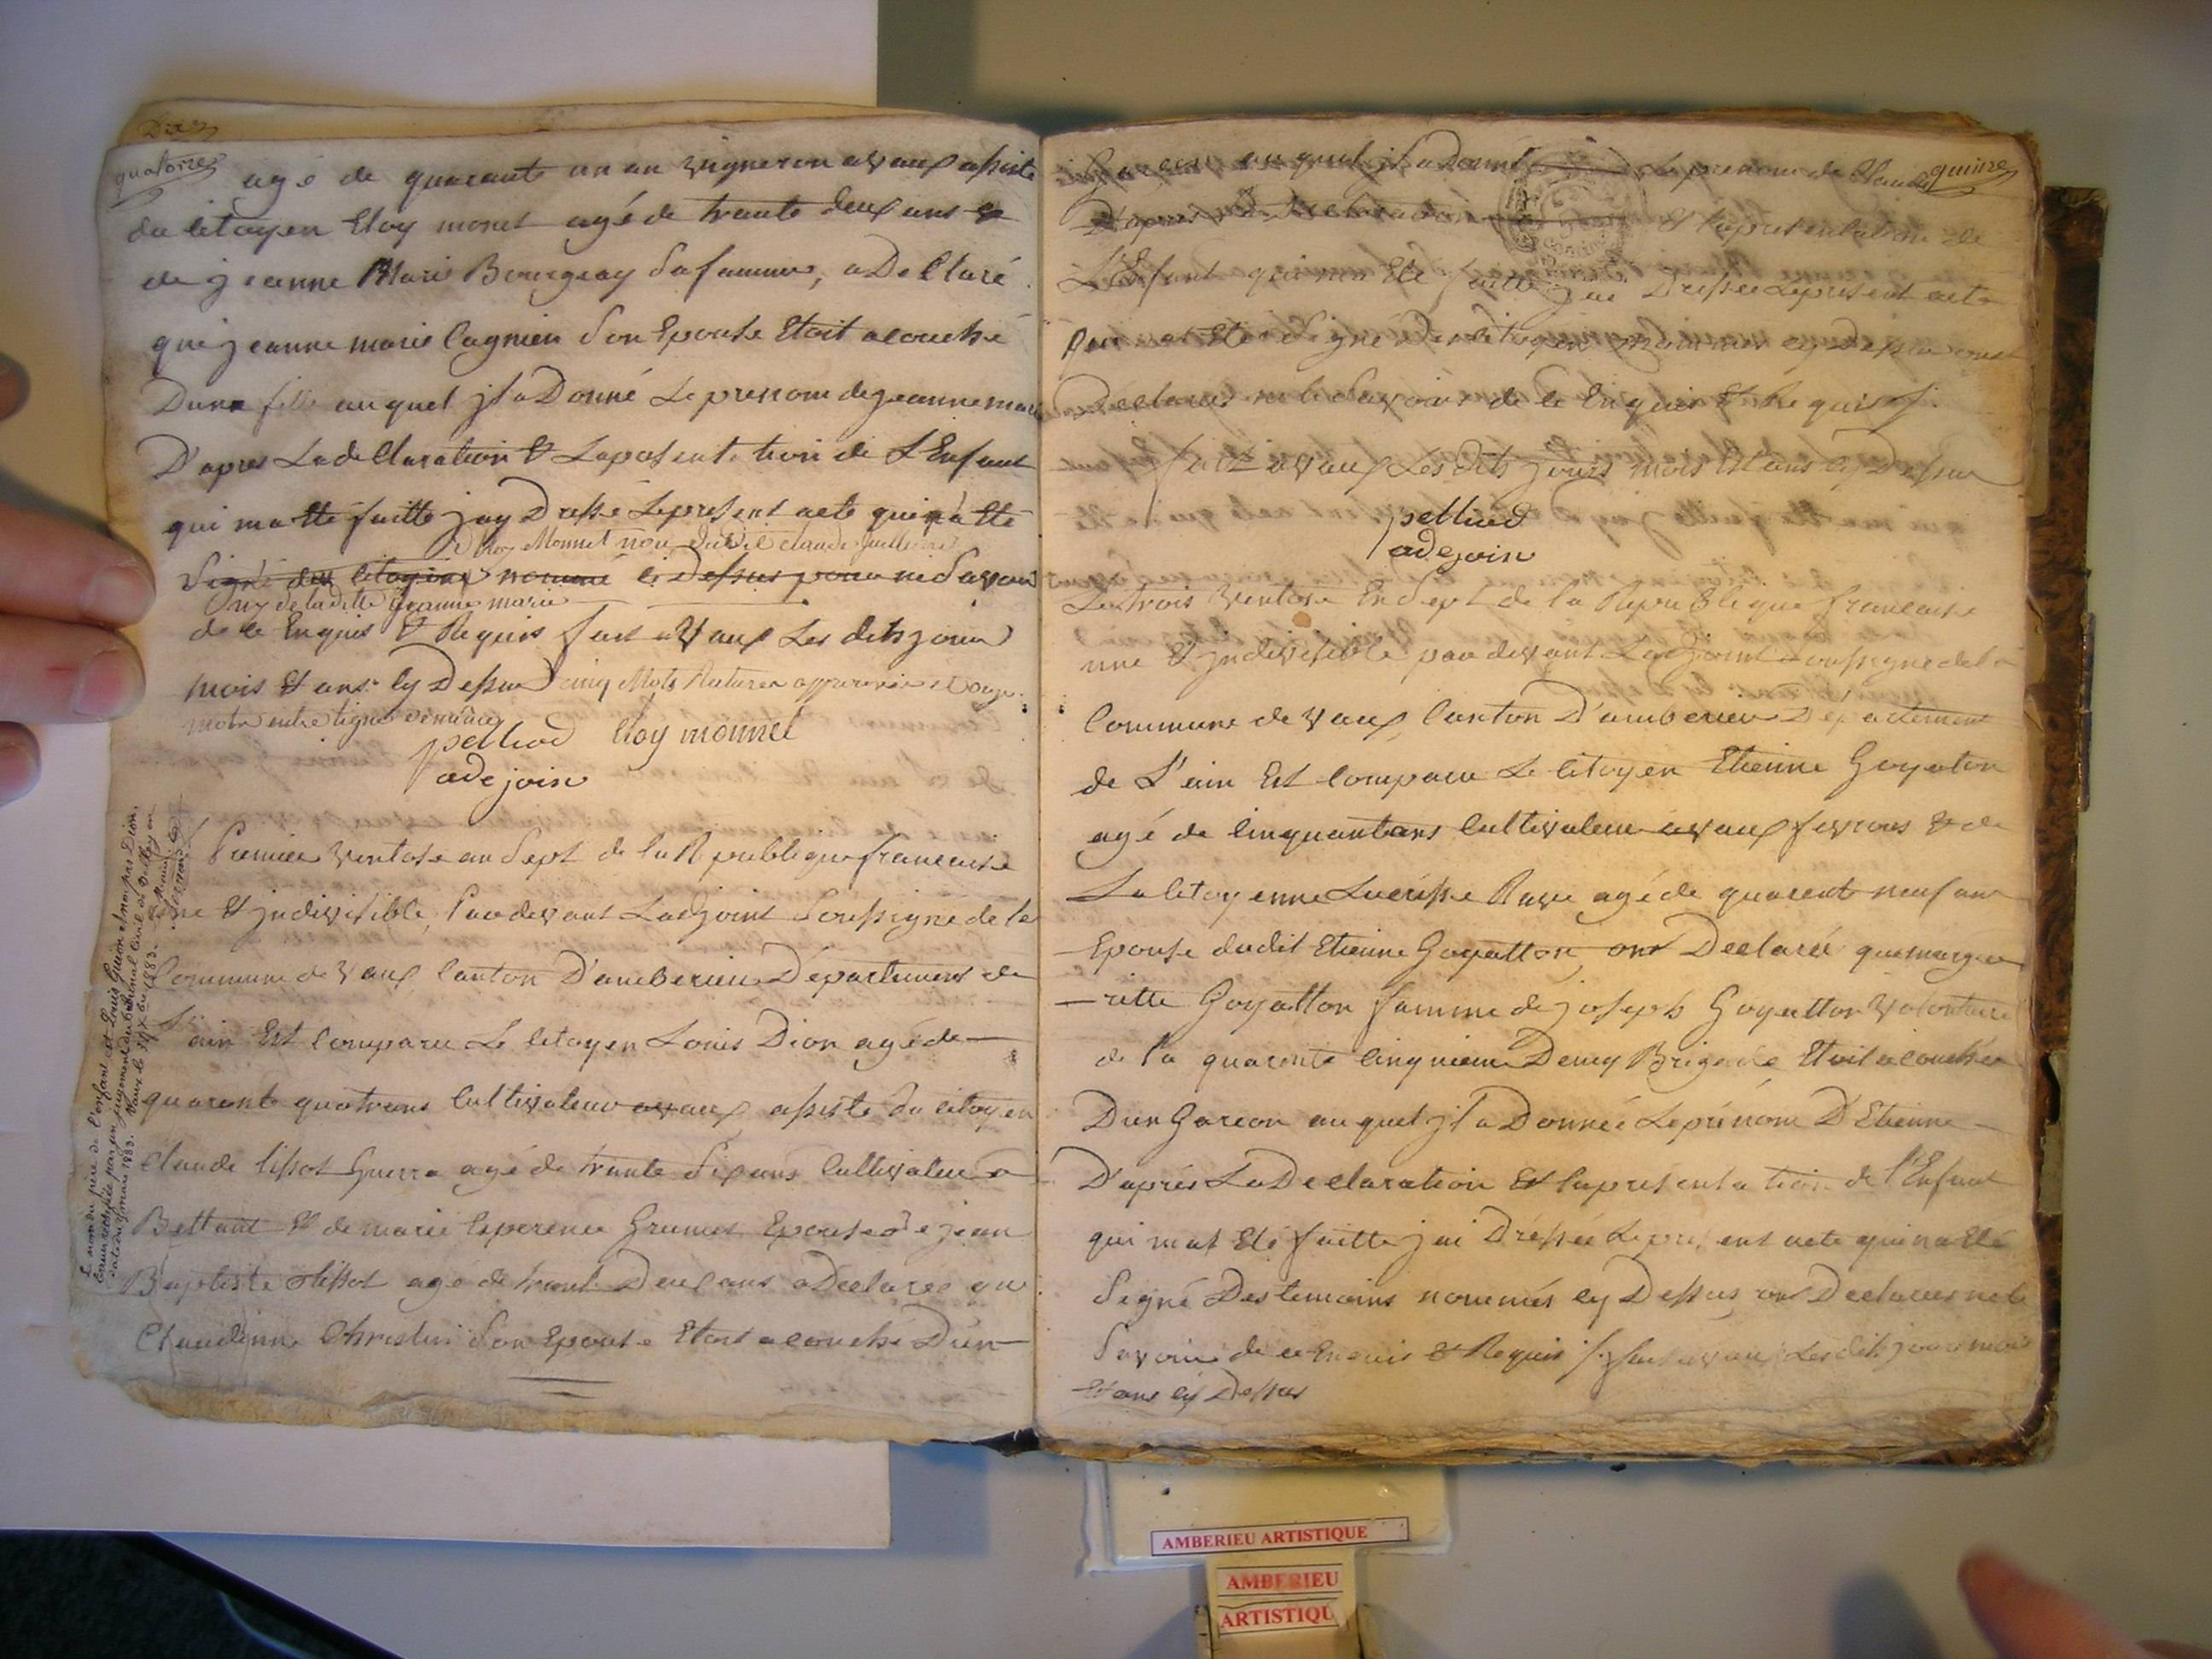 Dix
quatorze
agé de quarante un an vigneron a vaux assisté
du citoyen Eloy monet agé de trante deux ans &
de jeanne Marie Bourgeay sa famme, a Declaré
que jeanne marie Cagnien son Epouse Etoit acouché
Dune fille auquel jl a Donné Le prenom de jeanne marie
D'apres La declaration & La posentation de L'Enfant
qui ma Eté faitte jay Dressé Le present acte qui n'a Eté
Eloy Monnet non du dit claude
Signé des citoyens nommé ci Dessus pour ne Savoir
ny de la ditte jeanne marie
de ce Enquis & Requis fait a Vaux Les dits jour
mois Et ans cy Dessus cinq Mots Raturés approuvés et onze
mots entre lignes de même
pelliod Eloy monnet
adejoin
Premier ventose an Sept de la Republique francaise
une & jndivisible, Pardevant Ladjoint Soussigné de la
Commune de Vaux Canton D'amberieu Département de
L'ain Est Comparu Le citoyen Louis Dion agé de
quarante quatre ans Cultivateur a vaux assisté du citoyen
claude lissot Guerre agé de trante Sis ans Cultivateur a
Bettant & de marie Esperence Grumet Epouse de jean
Baptiste olissot agé de trant Deux ans a Declaree que
Claudinne Christin Son Epouse Etoit acouché Dun
Le nom du père de l'enfant est Louis Guion et non pas Dion.
Erreur rectifiée par un jugement du tribunal Civil de Belley en
date du 9 mai 1883. Vaux le 31 Xbre 1883. Le Maire
quinze
Garcon auquel jl a Donné Le prenom de Claude
D'apres La Declaration & Lapresentation de
L'Enfant qui ma Eté faitte jai Dressée Le present acte
qui Eté Signé Des citoyens nommés cy Dessus ont
Declaré ne le Savoir de ce Enquis & Requis
fait a vaux Les dits jours mois Est ans cy Dessus
pelliod
adejoin
Le trois Ventose En Sept de la Republique francaise
une & jndivisible par devant Ladjoint soussigné de la
Commune de vaux Canton D'amberieu Département
de L'ain Est Comparu Le citoyen Etienne Goyaton
agé de Cinquantans Cultivateur a vaux fevrous & de
La Citoyenne Lucresse Rave agé de quarent neuf ans
Epouse dudit Etienne Goyatton, ont Declaréé que margue
ritte Goyatton famme de joseph Goyatton volontaire
de la quarente Cinquieme Demy Brigade Etoit acouchée
Dun Garcon auquel jl a Donnéé Le prénom D'Etienne
D'après La Declaration Et lapresentation de l'Enfant
qui mat Eté faitte jai Dréssée Le present acte qui na Eté
Signé Des temoins nommés cy Dessus ont Declarés ne le
Savoir de ce Enquis & Requis fait a vaux Les dits jour mois
Et ans cy Dessus
AMBERIEU ARTISTIQUE
AMBERIEU
ARTISTIQU